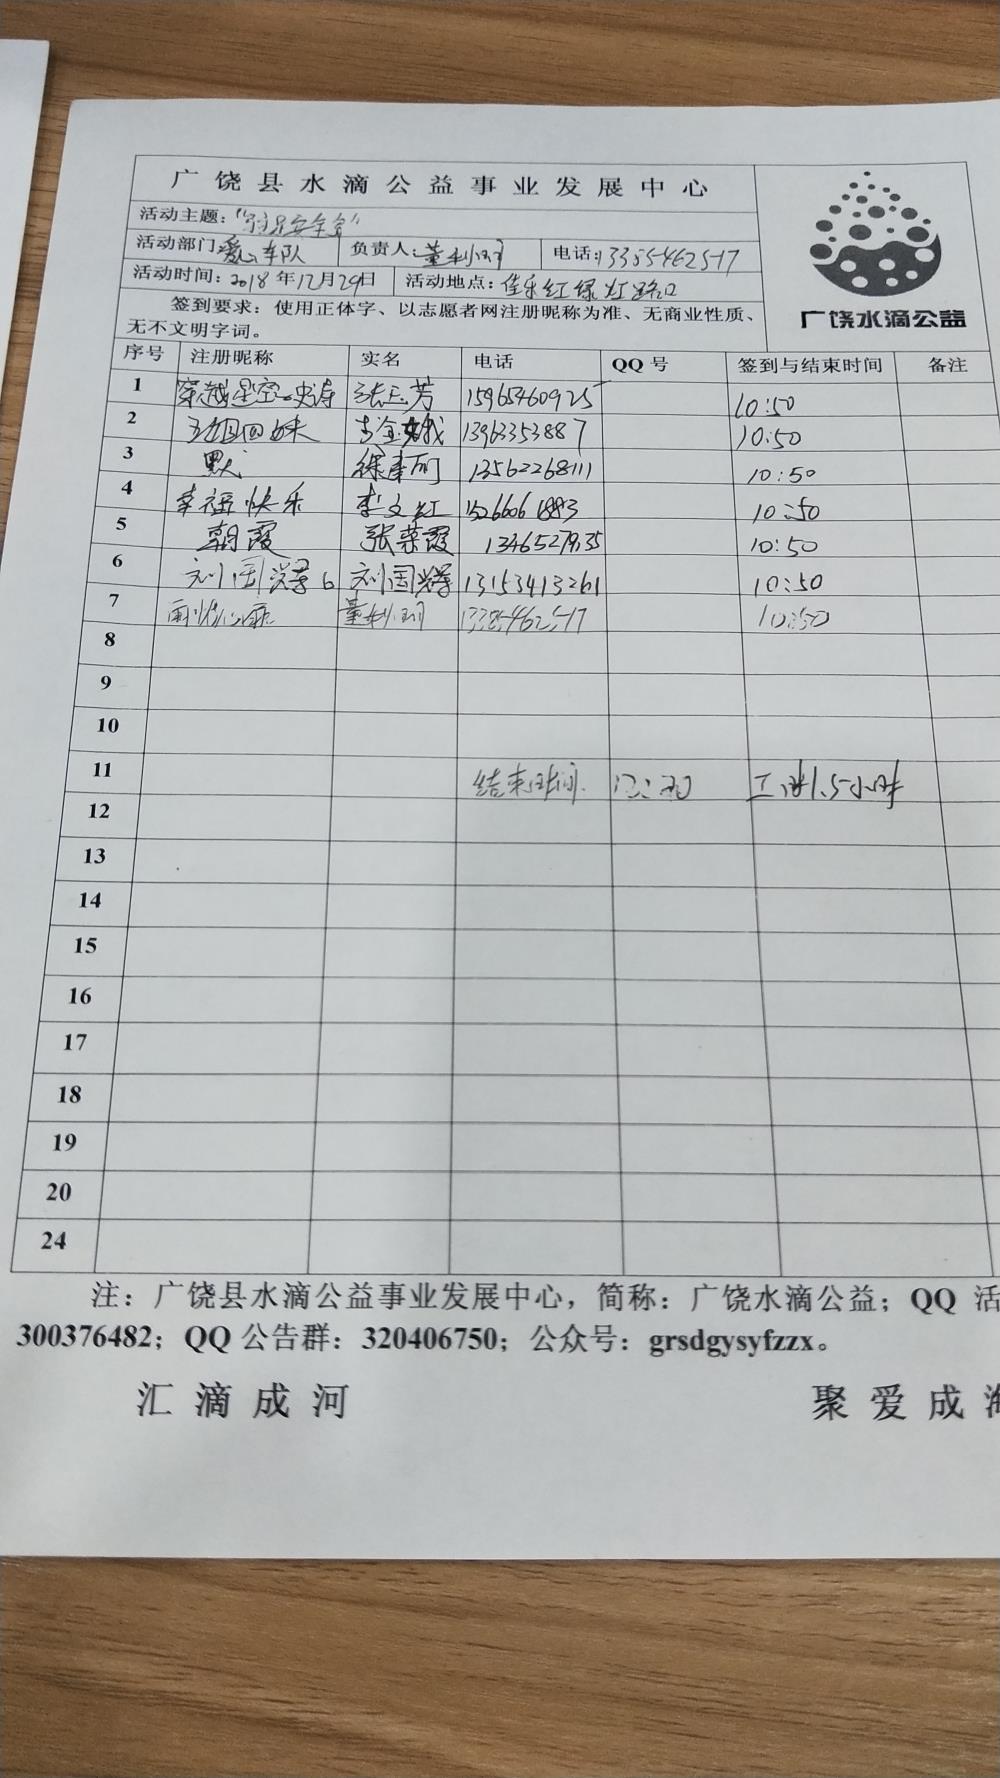 广饶县水滴公益事业发展中心
活动主题：
活动部门 爱心车队 负责人： 电话：13355462517
活动时间：2018年12月29日 活动地点：佳乐红绿灯路口
签到要求：使用正体字、以志愿者网注册昵称为准、无商业性质、
无不文明字词。
广饶水滴公益
序号 注册昵称 实名 电话 QQ号 签到与结束时间 备注
1 穿越星空 张玉芳 15965460925 10:50
2 13963353887 10:50
3 默 13562268111 10:50
4 幸福快乐 李文红 10:50
5 朝霞 张荣霞 13465279135 10:50
6 刘国 刘国 13153413261 10:50
7 10:50
8
9
10
11 结束时间 1.5小时
12
13
14
15
16
17
18
19
20
24
注：广饶县水滴公益事业发展中心，简称：广饶水滴公益；QQ 活
300376482；QQ 公告群：320406750；公众号：grsdgysyfzzx。
汇滴成河 聚爱成海